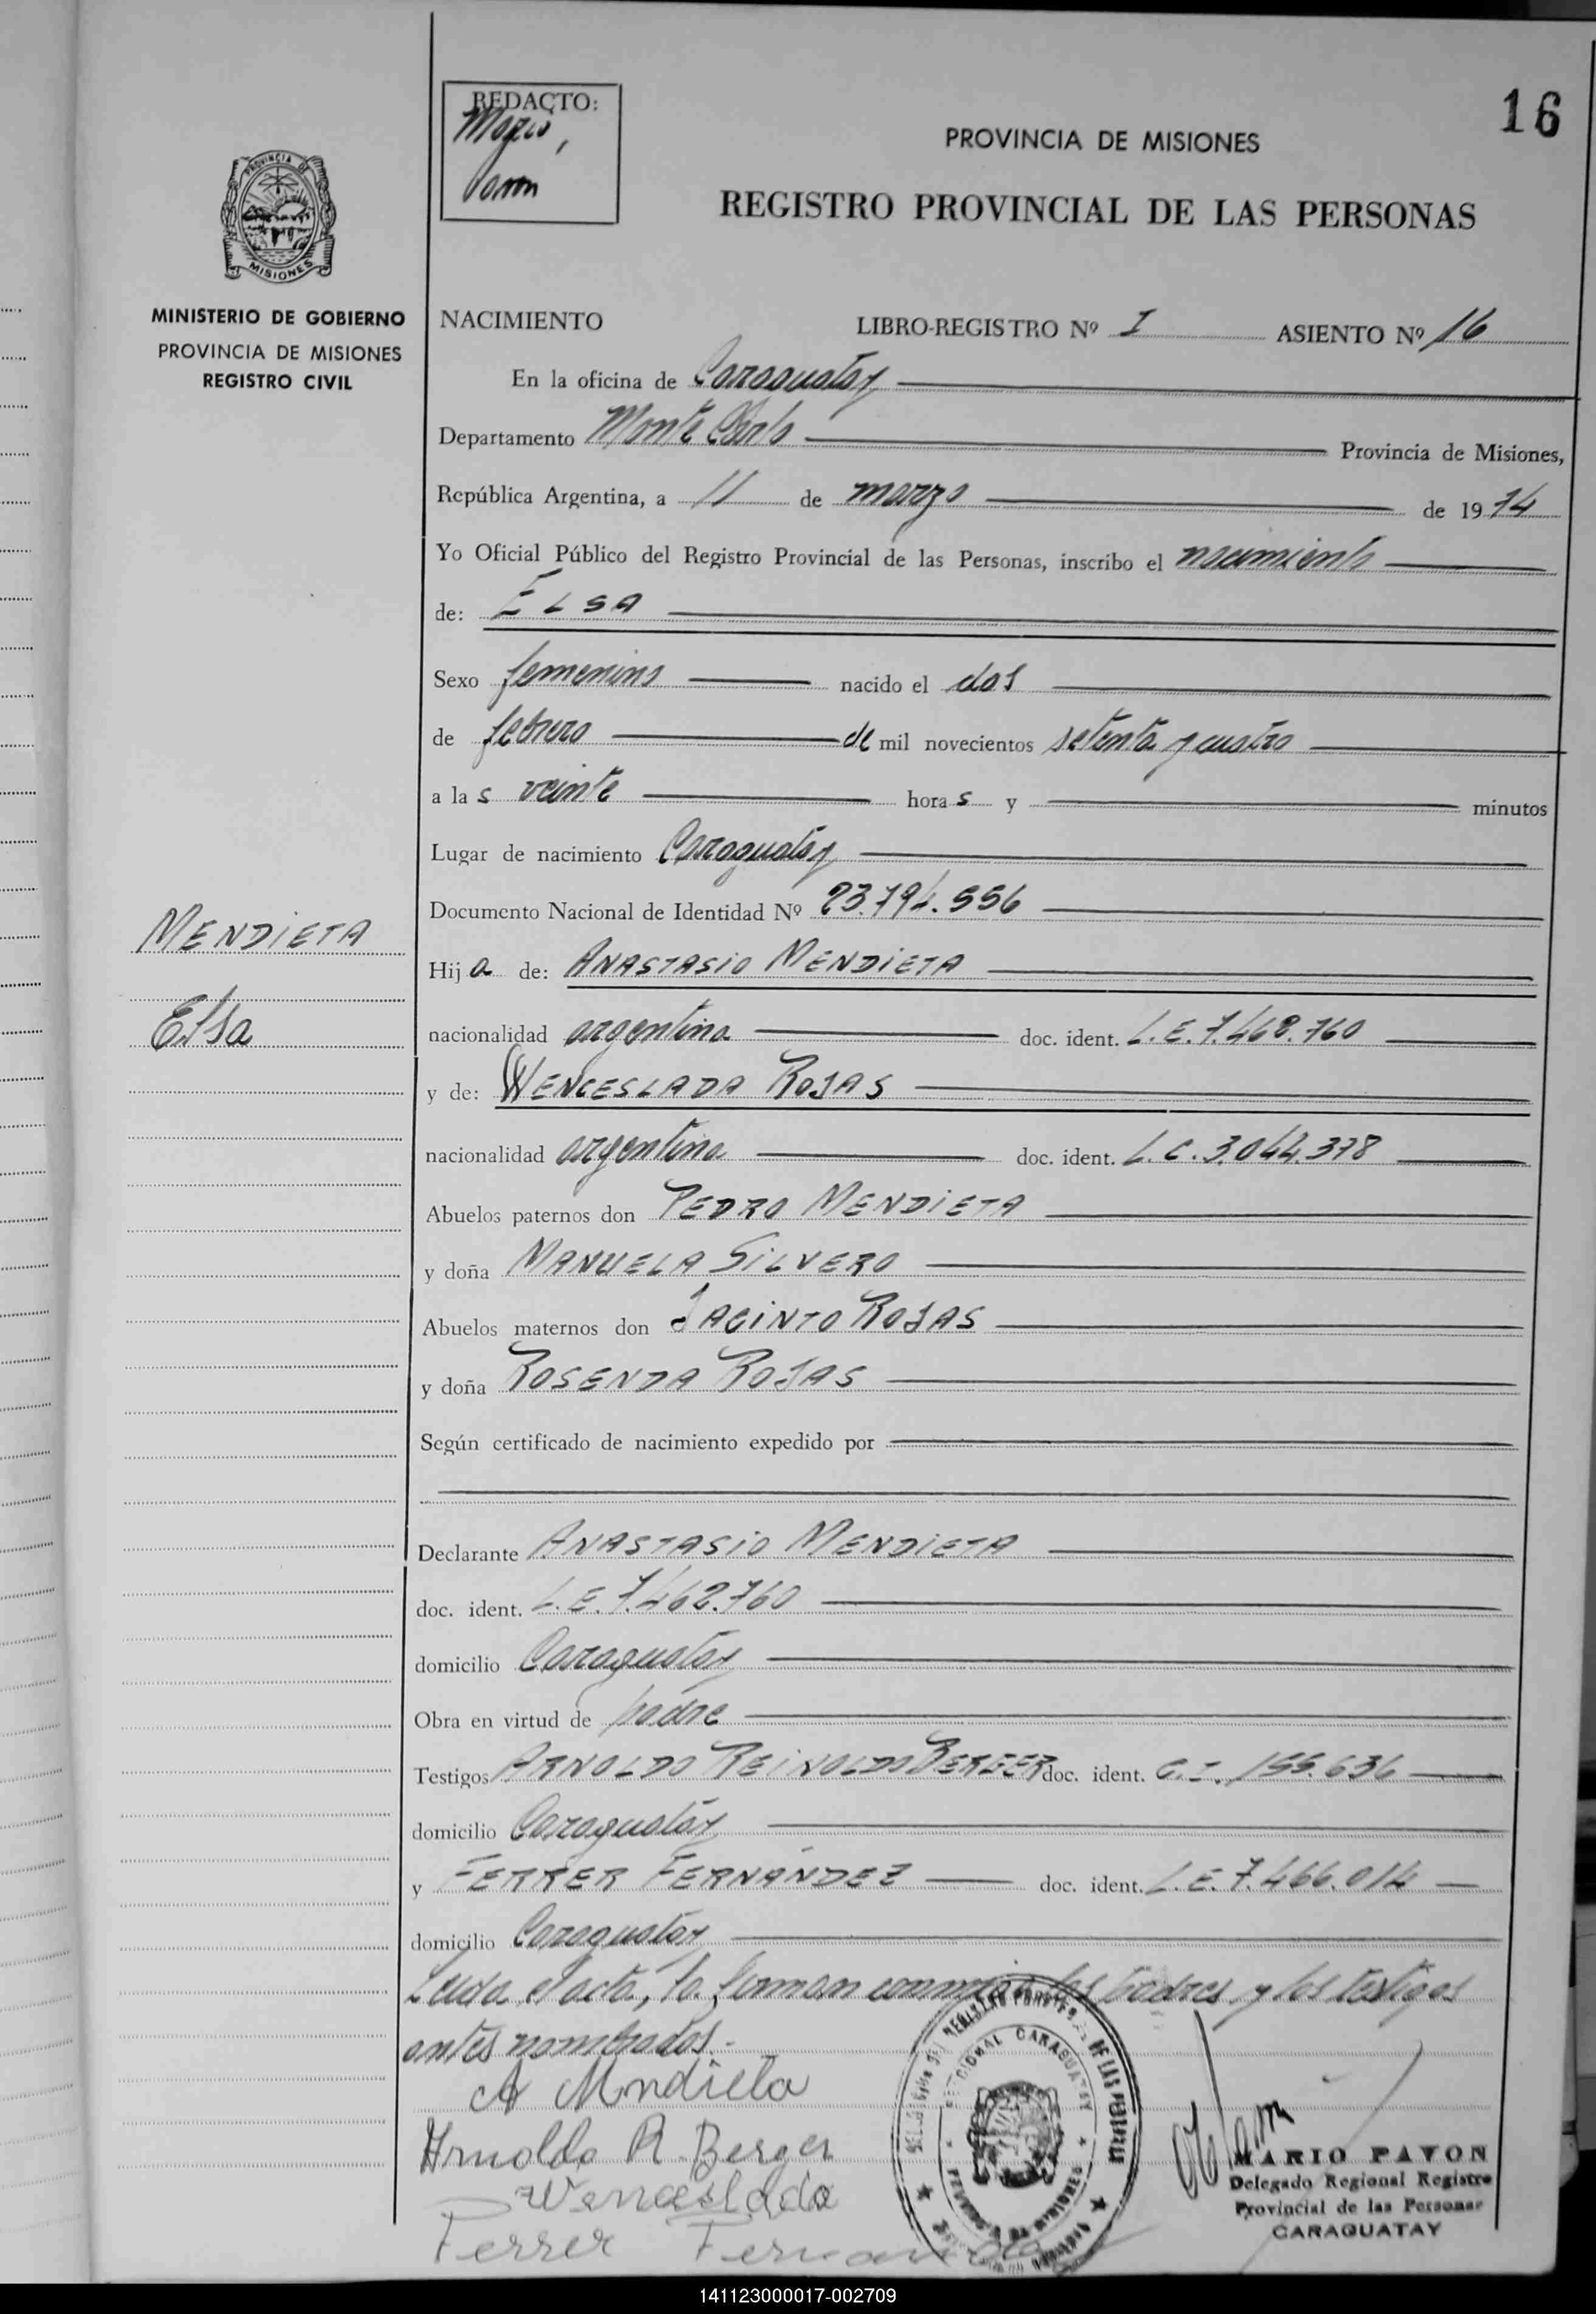 16
REDACTO:
Mario
Pavon
PROVINCIA DE MISIONES
REGISTRO PROVINCIAL DE LAS PERSONAS
PROVINCIA DE
MISIONES
MINISTERIO DE GOBIERNO
PROVINCIA DE MISIONES
REGISTRO CIVIL
NACIMIENTO LIBRO-REGISTRO Nº I ASIENTO Nº 16
En la oficina de Caraguatay
Departamento Monte Carlo Provincia de Misiones,
República Argentina, a 11 de marzo de 1974
Yo Oficial Público del Registro Provincial de las Personas, inscribo el nacimiento
de: ELSA
Sexo femenino nacido el dos
de febrero de mil novecientos setenta y cuatro
a las veinte horas y minutos
Lugar de nacimiento Caraguatay
Documento Nacional de Identidad Nº 23.794.556
MENDIETA
Elsa
Hija de: ANASTASIO MENDIETA
nacionalidad argentina doc. ident. L.E. 7.468.760
y de: WENCESLADA ROJAS
nacionalidad argentina doc. ident. L.C. 3.044.378
Abuelos paternos don PEDRO MENDIETA
y doña MANUELA SILVERO
Abuelos maternos don JACINTO ROJAS
y doña ROSENDA ROJAS
Según certificado de nacimiento expedido por
Declarante ANASTASIO MENDIETA
doc. ident. L.E. 7.462.760
domicilio Caraguatay
Obra en virtud de padre
Testigos ARNOLDO REINOLDO BERGER doc. ident. C.I. 155.636
domicilio Caraguatay
y FERRER FERNÁNDEZ doc. ident. L.E. 7.466.014
domicilio Caraguatay
Leida el acta, la firman conmigo los padres y los testigos
antes nombrados.-
A Mendieta
Arnoldo R. Berger
Wenceslada
Ferrer Fernandez
SECCIONAL CARAGUATAY
DE LAS PERSONAS
MARIO PAVON
Delegado Regional Registro
Provincial de las Personas
CARAGUATAY
141123000017-002709